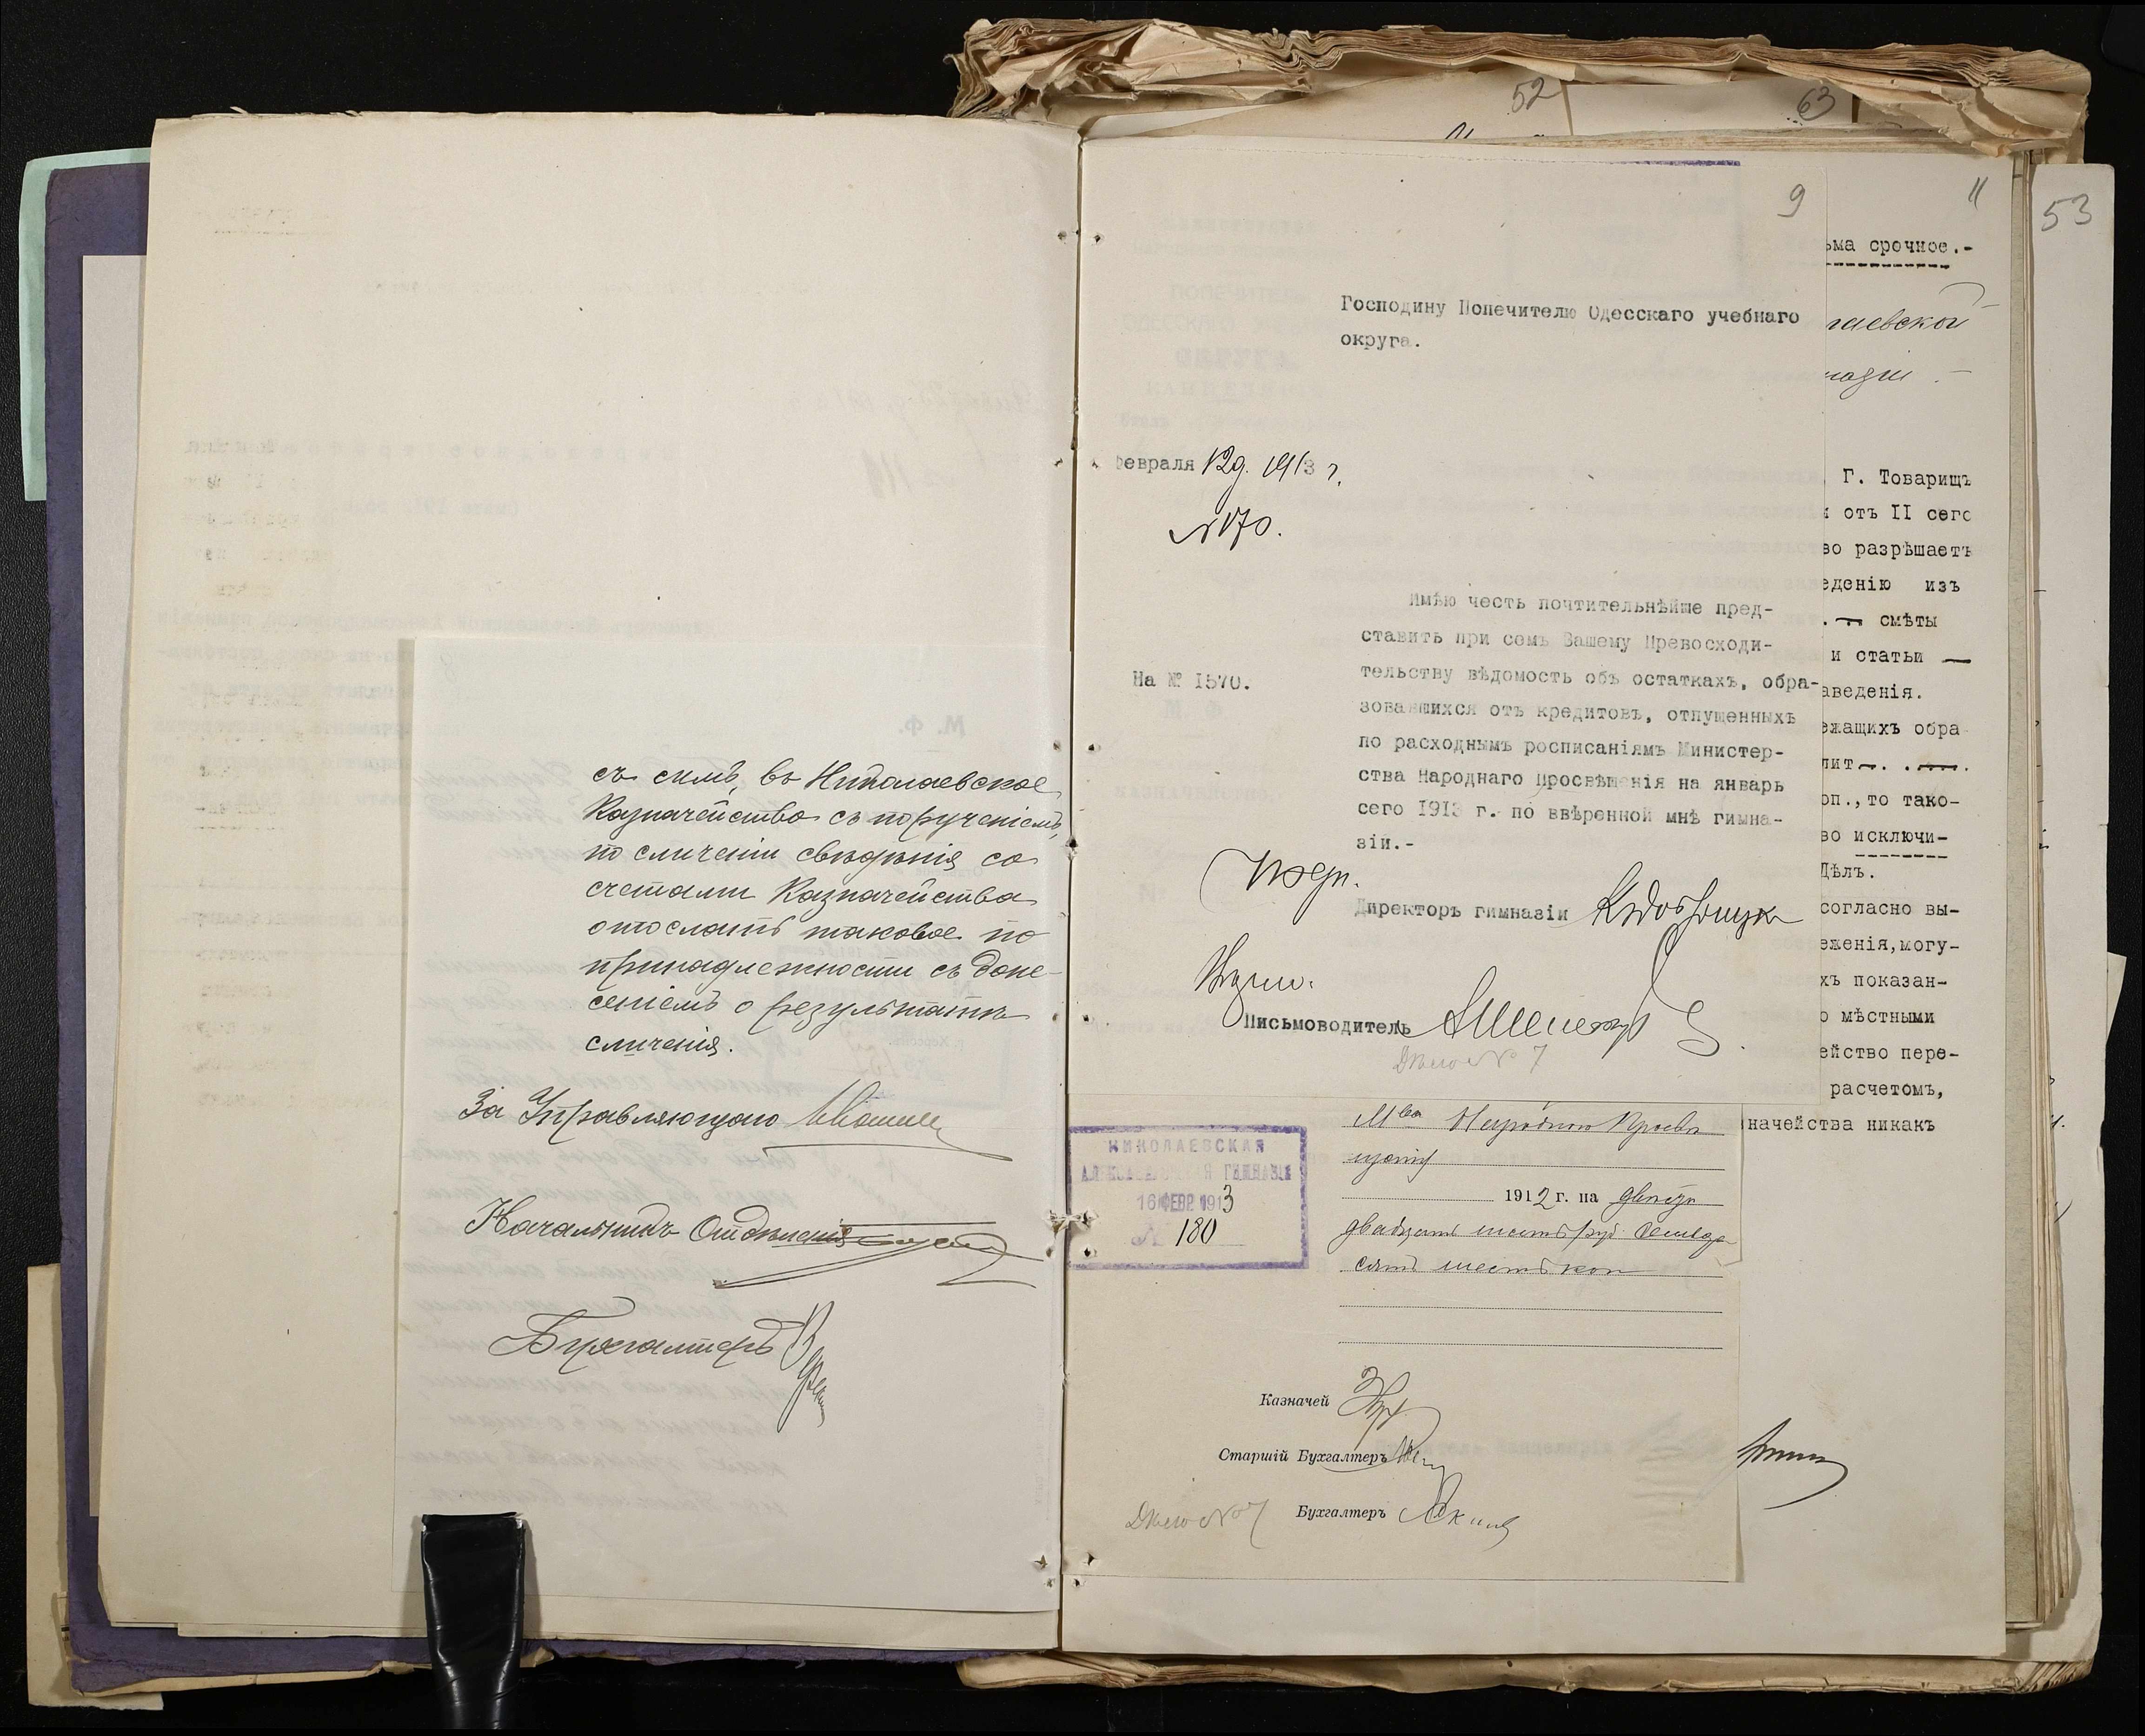 съ симъ, въ Николаевское
Казначейство съ порученіемъ,
по сличеніи свѣдѣнія со
счетами Казначейства
отослать таковое по
принадлежности съ доне-
сеніемъ о результатѣ
сличенія.
За Управляющаго
Начальникъ Отдѣленія
Бухгалтеръ
52
63
9
11
53
ьма срочное.-
Господину Попечителю Одесскаго учебнаго
округа.
февраля 12 д. 1913 г.
№ 170.
На № 1570.
Имѣю честь почтительнѣйше пред-
ставить при семъ Вашему Превосходи-
тельству вѣдомость объ остаткахъ, обра-
зовавшихся отъ кредитовъ, отпущенныхъ
по расходнымъ росписаніямъ Министер-
ства Народнаго Просвѣщенія на январь
сего 1913 г. по ввѣренной мнѣ гимна-
зіи.-
Директоръ гимназіи
Письмоводитель
Дѣло № 7
гаевской
назіи .-
Г. Товарищъ
отъ II сего
во разрѣшаетъ
еденію изъ
.— смѣты
и статьи —
аведенія.
ежащихъ обра
лит—. .—.
оп.,то тако-
во исключи-
Дѣлъ.
согласно вы-
еженія,могу-
хъ показан-
о мѣстными
ейство пере-
расчетомъ,
начейства никакъ
НИКОЛАЕВСКАЯ
АЛЕКСАНДРОВСКАЯ ГИМНАЗІЯ
16 ФЕВР 1913
№ 180
М-ва Народнаго Просвѣ
щенія
1912 г. на двѣсти
двадцать шесть руб. семьде
сятъ шесть коп
Казначей
Старшій Бухгалтеръ
Бухгалтеръ
Дѣло № 7